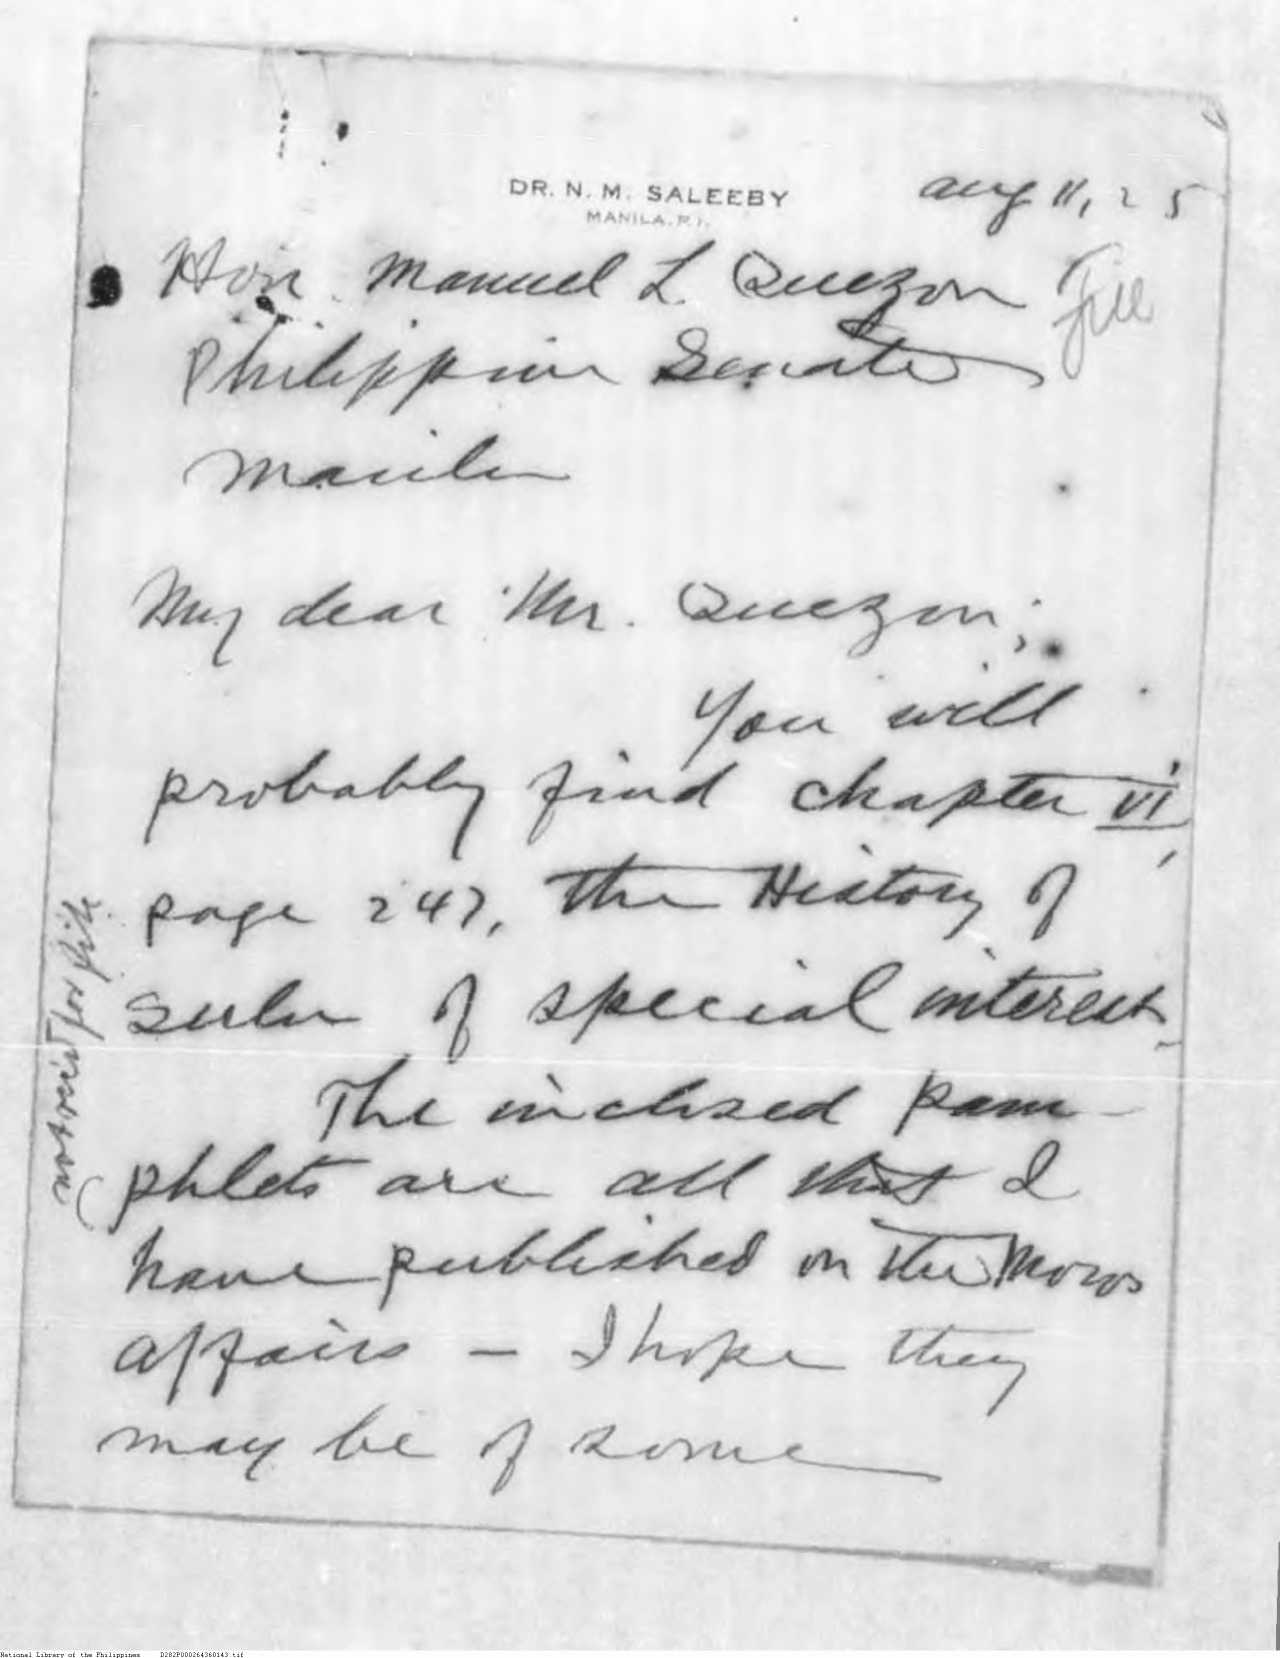 DR. N. M. SALEEBY
MANILA. P. I.
Aug 11, 25
Hon. Manuel L. Quezon
File
Philippine Senate
Manila
My dear Mr. Quezon;
You will
probably find chapter VI,
page 247, the History of
Sulu of special interest.
The inclosed pam-
phlets are all that I
have published on the Moros
affairs – I hope they
may be of some
not rec'd for file
National Library of the Philippines D282P000264360143.tif